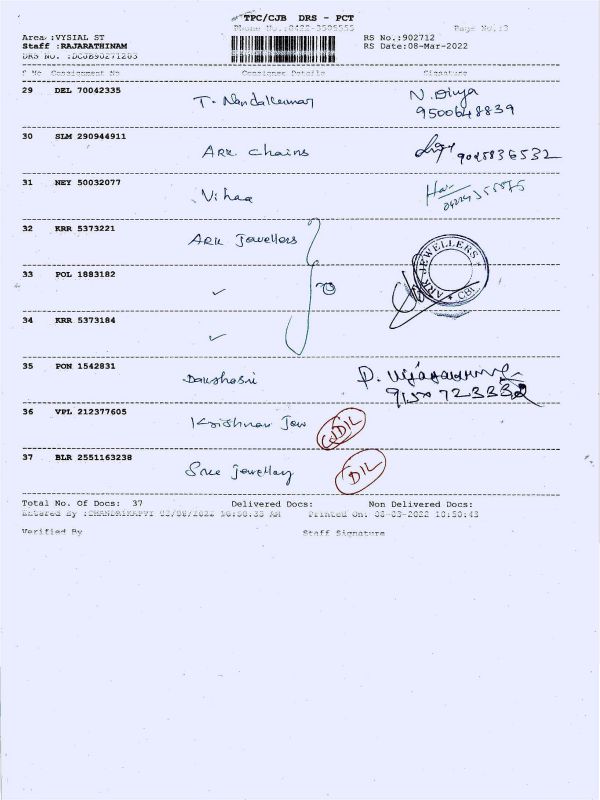 TPC/CJB DRS - PCT
Phone No.:0422-3505555 Page No.:3
Area :VYSIAL ST RS No.:902712
Staff :RAJARATHINAM RS Date:08-Mar-2022
DRS No. :DCJB90271203
S No Consignment No Consignee Details Signature
29 DEL 70042335 T. Nandakumar N. Divya
9500648839
30 SLM 290944911 ARK Chains 9045836532
31 NEY 50032077 Vihaa
32 KRR 5373221 ARK Jewellers
ARK JEWELLERS CBE
33 POL 1883182 ✓
34 KRR 5373184 ✓
35 PON 1542831 Dakshasri
36 VPL 212377605 Krishnan Jew DIL
37 BLR 2551163238 Sree Jewellary DIL
Total No. Of Docs: 37 Delivered Docs: Non Delivered Docs:
Entered By :CHANDRIKAPVT 03/08/2022 10:50:35 AM Printed On: 08-03-2022 10:50:43
Verified By Staff Signature